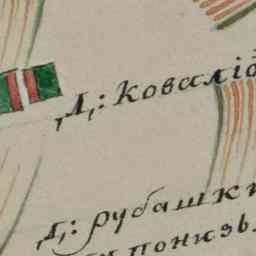 Д: Коваліо
Д: рубашки
понизь